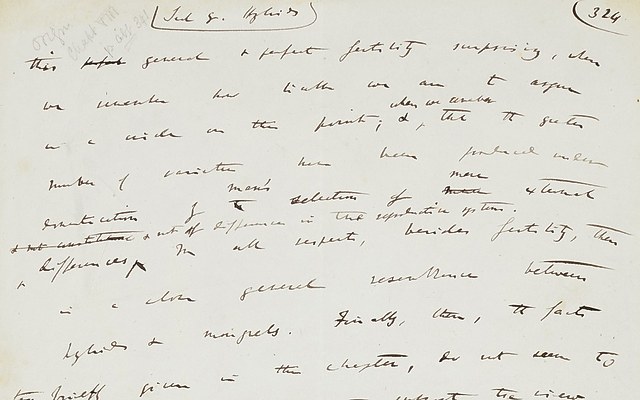 Sect 9. Hybrids
324
this general & perfect fertility surprising, when
we remember how liable we are to argue
in a circle on this point; & that the greater
when we remember
number of varieties have been produced under
domestication by man's selection of mere external
differences, & not of differences in the reproductive system.
In all respects, besides fertility, there
is a close general resemblance between
hybrids & mongrels. Finally, then, the facts
briefly given in this chapter, do not seem to
the view